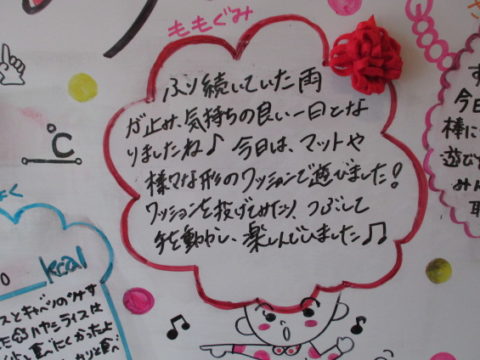 ももぐみ
ふり続いていた雨
が止み、気持ちの良い一日とな
りましたね♪ 今日は、マットや
様々な形のクッションで遊びました!
クッションを投げてみたり、つぶして
手を動かし、楽しんでいました♫
℃
kcal
す
今日
棒に
遊び
み